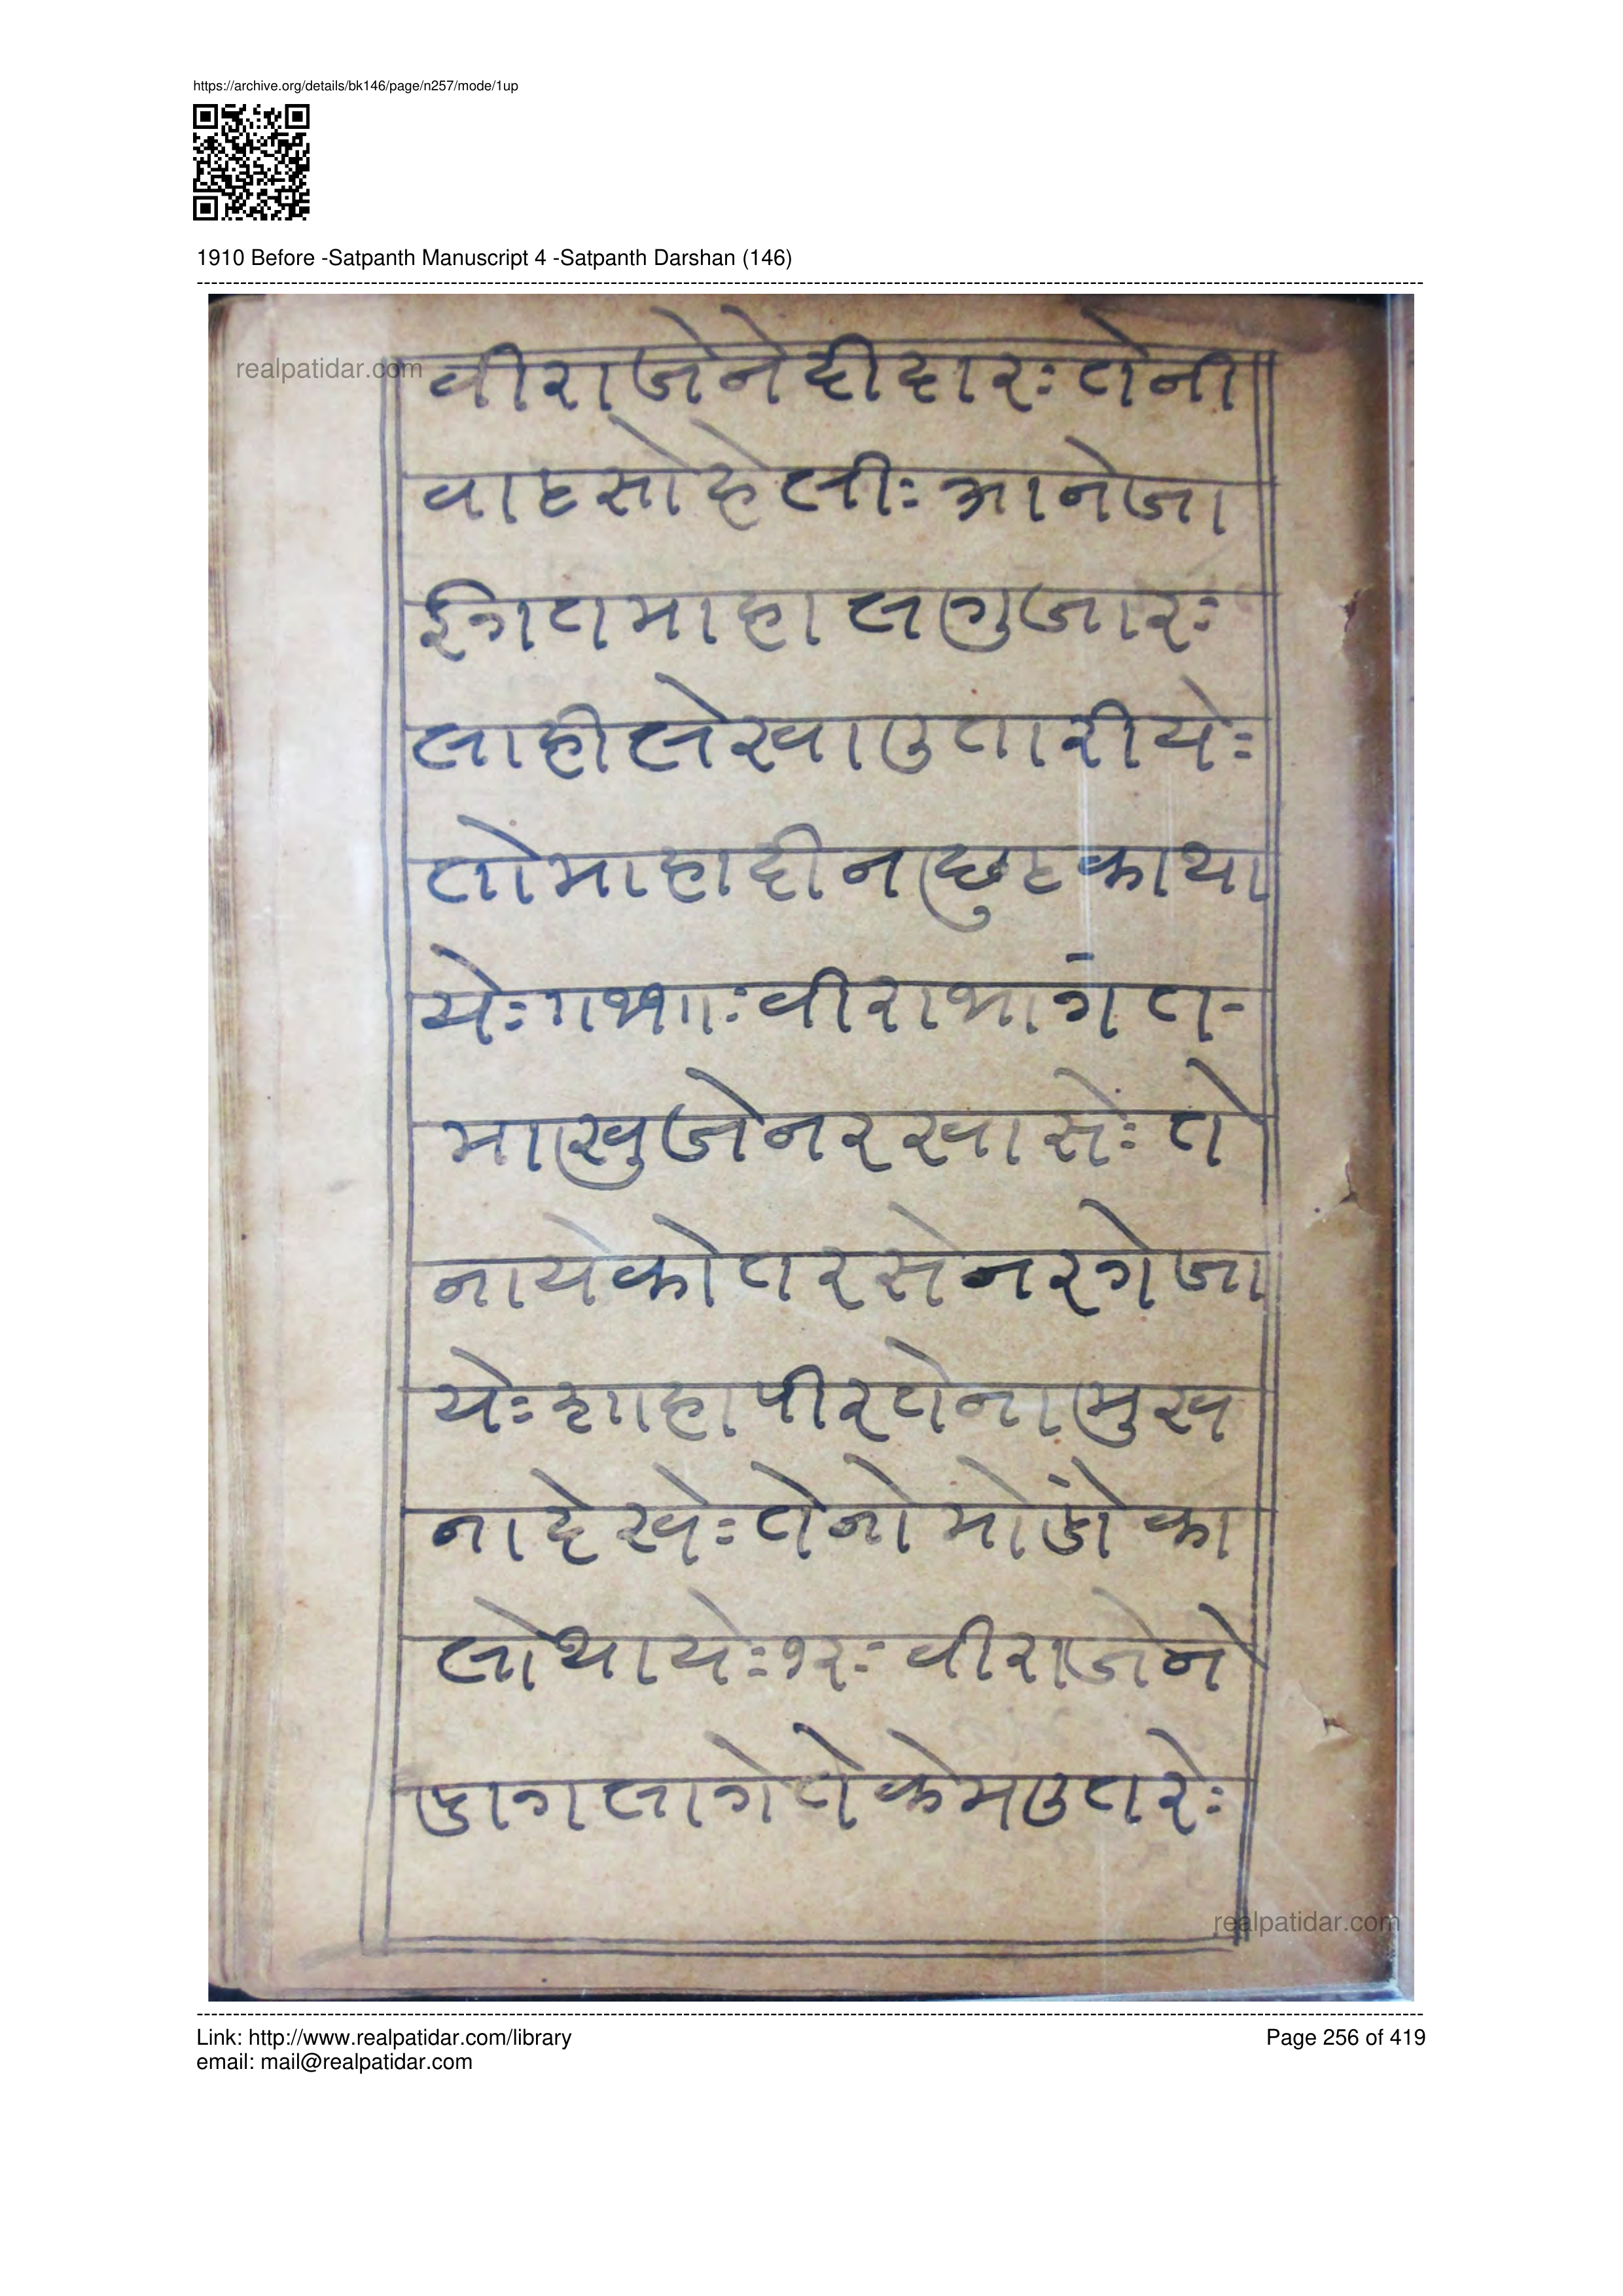 https://archive.org/details/bk146/page/n257/mode/1up
1910 Before -Satpanth Manuscript 4 -Satpanth Darshan (146)
realpatidar.com
वीराजेनेदीदारः तेनी
वाटसोहेलीः आनेजा
ईगतमाहालगुजारः
लाहीलेखाउतारीयेः
तोमाहादीनछुटकाथा
येः॥११॥ः वीराभांगत-
माखुजेनरखासेंः ते
नायेकोतरसेनरगेजा
येः शाहापीरतेनामुख
नादेखेः तेनोमोंडोका
लोथायेः१२ः वीराजेने
डागलागेतेकेमउतरेः
realpatidar.com
Link: http://www.realpatidar.com/library
Page 256 of 419
email: mail@realpatidar.com